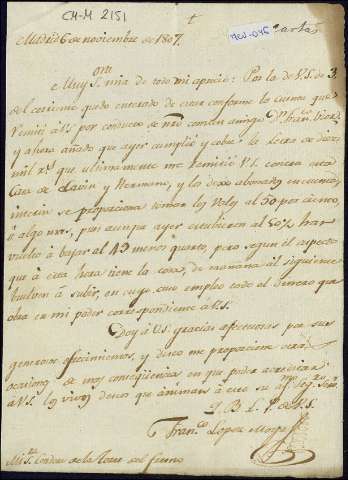 CM-M 2151
✝
MCU-046
Cartas
Madrid 6 de noviembre de 1807.
Muy Sor. mio de todo mi aprecio: Por la de V.S. de 3
del corriente quedo enterado de estar conforme la cuenta que
remití a V.S. por conducto de nro comun amigo Dn. Franco.
y ahora añado que ayer cumplió y cobré la letra de diez
mil rs. que ultimamente me remitió V.S. contra esta
Casa de Clavin y Hermano, y los dexo abonados en cuenta,
interin se proporciona tomar los Vales al 50 por ciento,
ó algo mas, pues aunque ayer estubieron al 50 1/2 han
vuelto á bajar al 49 menos quarto, pero segun el aspecto
que á esta hora tiene la cosa, de mañana al siguiente
buelven á subir, en cuyo caso empleo todo el dinero que
obra en mi poder correspondiente á V.S.
Doy á V.S. gracias afectuosas por sus
generosos ofrecimientos, y deseo me proporcione
ocasiones de mayor consequencia en que poder acreditar
á V.S. los vivos deseos que animan á este su
Q. B. L. M. de V.S.
Franco. Lopez
Mi Sr. Conde de la Torre del Fresno